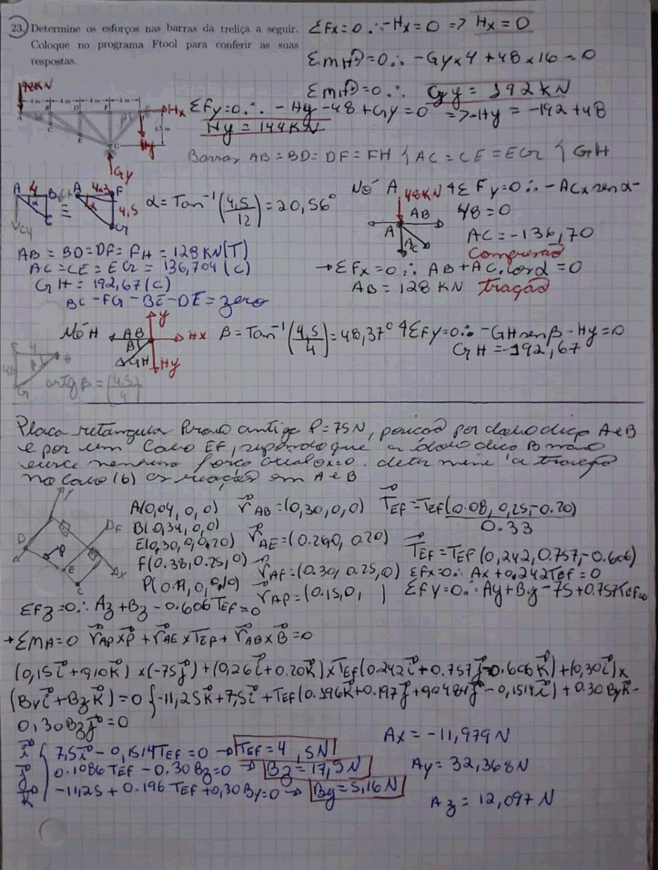 23. Determine os esforços nas barras da treliça a seguir.
Coloque no programa Ftool para conferir as suas
respostas.
ΣFx=0 ∴ -Hx=0 => Hx=0
ΣMH=0 ∴ -Gy×4+48×16=0
Gy = 192 KN
ΣFy=0 ∴ -Hy-48+Gy=0 => -Hy = -192+48
Hy=144KN
Hx
Hy
Gy
Barras AB=BD=DF=FH { AC=CE=EG { GH
α=Tan⁻¹(4,5/12)=20,56°
Nó A 48KN ΣFy=0 ∴ -AC×senα-
48=0
AC=-136,70
Compressão
AB=BD=DF=FH=128KN(T)
AC=CE=EG=136,704(C)
GH=192,67(C)
BC-FG-BE-DE=zero
→ΣFx=0 ∴ AB+AC.cosα=0
AB=128 KN tração
Nó H AB Hx GH Hy y
β=Tan⁻¹(4,5/4)=48,37° ΣFy=0 ∴ -GHsenβ-Hy=0
GH=-192,67
arctgβ=(4,5/4)
Placa retangular Prova antiga P=75N, por dobradiça A e B
e por um Cabo EF, supondo que a dobradiça B não
exerce nenhum força axial. determine a tração
no cabo (b) as reação em A e B
A(0,04,0,0) rAB=(0,30,0,0) TEF=TEF(0.08,0,25,-0.20)/0.33
B(0,34,0,0)
E(0,30,0,0,20)
F(0.38,0.25,0) rAF=(0.30,0.25,0)
TEF=TEF(0,242,0.757,-0.606)
ΣFx=0 ∴ Ax+0.242TEF=0
ΣFy=0 ∴ Ay+By-75+0.757TEF=0
ΣFz=0 ∴ Az+Bz-0.606TEF=0
→ΣMA=0 rAP×P+rAE×TEF+rAB×B=0
(0,15i+0,10k)×(-75j)+(0,26i+0.20k)×TEF(0.242i+0.757j-0.606k)+(0,30i)×
(Byj+Bzk)=0 {-11,25k+7,5i+TEF(0.196k+0.197j+0,0484j-0,1514i)+0.30Byk-
0,30Bzj=0
i { 7,5i-0,1514TEF=0 →
j 0.1086TEF-0.30Bz=0 → Bz=17,9N
k -11,25+0.196TEF+0,30By=0 → By=5,16N
Ax=-11,979N
Ay=32,368N
Az=12,097N